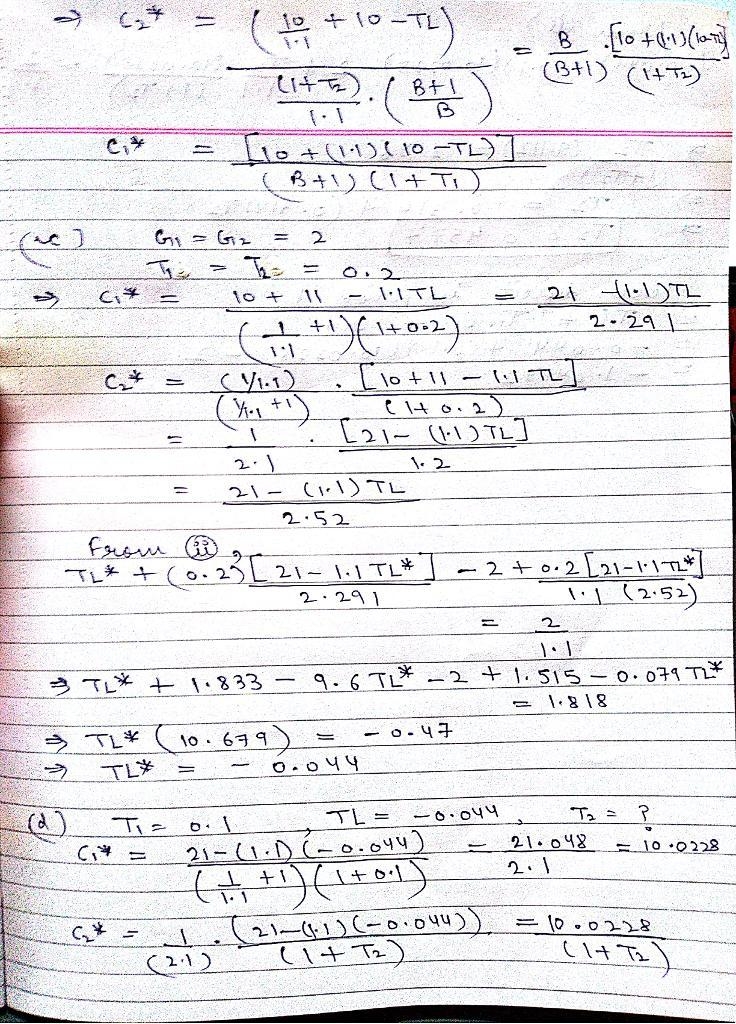 ⇒ C₂* = (10/1.1 + 10 - TL) / ((1+T₂)/1.1 · (B+1/B)) = B/(B+1) · [10 + (1.1)(10-TL)]/(1+T₂)
C₁* = [10 + (1.1)(10 - TL)] / (B+1)(1+T₁)
G₁ = G₂ = 2
T₁ = T₂ = 0.2
⇒ C₁* = 10 + 11 - 1.1TL / (1/1.1 + 1)(1+0.2) = 21 - (1.1)TL / 2.291
C₂* = (1/1.1)/(1/1.1 + 1) · [10 + 11 - 1.1 TL]/(1+0.2)
= 1/2.1 · [21 - (1.1)TL]/1.2
= 21 - (1.1) TL / 2.52
From (ii),
TL* + (0.2)[21 - 1.1 TL*]/2.291 - 2 + 0.2[21-1.1TL*]/1.1 (2.52)
= 2/1.1
⇒ TL* + 1.833 - 9.6 TL* - 2 + 1.515 - 0.079 TL*
= 1.818
⇒ TL* (10.679) = - 0.47
⇒ TL* = - 0.044
(d) T₁ = 0.1, TL = -0.044, T₂ = ?
C₁* = 21-(1.1)(-0.044) / (1/1.1 + 1)(1+0.1) = 21.048/2.1 = 10.0228
C₂* = 1/(2.1) · (21-(1.1)(-0.044))/(1+T₂) = 10.0228/(1+T₂)